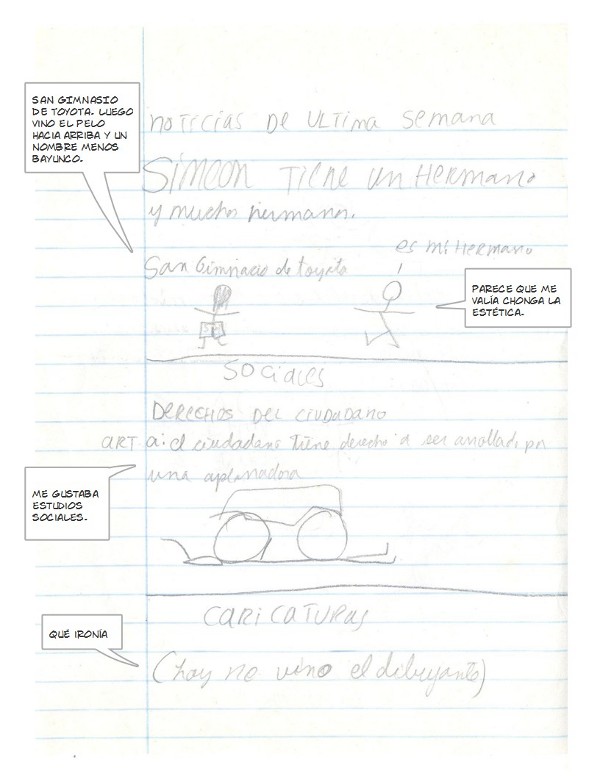 SAN GIMNASIO
DE TOYOTA. LUEGO
VINO EL PELO
HACIA ARRIBA Y UN
NOMBRE MENOS
BAYUNCO.
noTicias De ULTima semana
Simeon Tiene un Hermano
y muchos hermanos.
es mi Hermano
San Gimnacio de toyota
PARECE QUE ME
VALÍA CHONGA LA
ESTÉTICA.
SOCiales
DERECHOS DEL CIUDADANO
ART a: el ciudadano tiene derecho a ser arrollado por
una aplanadora
ME GUSTABA
ESTUDIOS
SOCIALES.
CARICATURAS
QUÉ IRONÍA
(hoy no vino el dibujante)